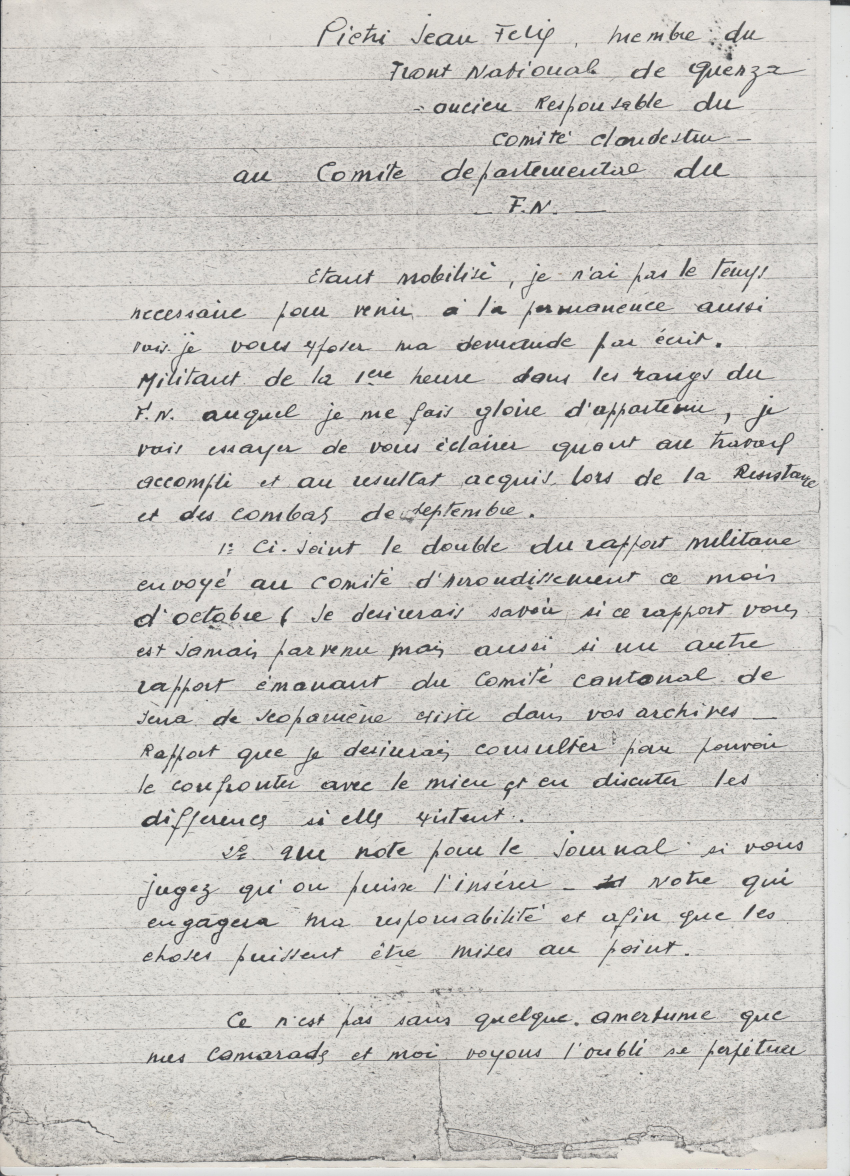 Pietri Jean Felix, membre du
Front National de Quenza
- ancien Responsable du
Comité clandestin -
au Comite departemental du
- F.N. -
Etant mobilisé, je n'ai pas le temps
necessaire pour venir à la permanence aussi
vais-je vous exposer ma demande par écrit.
Militant de la 1ere heure dans les rangs du
F.N. auquel je me fais gloire d'appartenir, je
vais essayer de vous éclairer quant au travail
accompli et au resultat acquis lors de la Resistance
et des combats de septembre.
1: Ci-Joint le double du rapport militaire
envoyé au comité d'arrondissement ce mois
d'octobre ( Je desirerais savoir si ce rapport vous
est jamais parvenu mais aussi si un autre
rapport émanant du Comité cantonal de
Serra de Scopamène existe dans vos archives -
Rapport que je desirerais consulter pour pouvoir
le confronter avec le mien et en discuter les
differences si elles existent.
2e une note pour le Journal si vous
jugez qu'on puisse l'insérer - Notre qui
engagera ma responsabilité et afin que les
choses puissent être mises au point.
Ce n'est pas sans quelque. amertume que
mes Camarades et moi voyons l'oubli se perpétuer